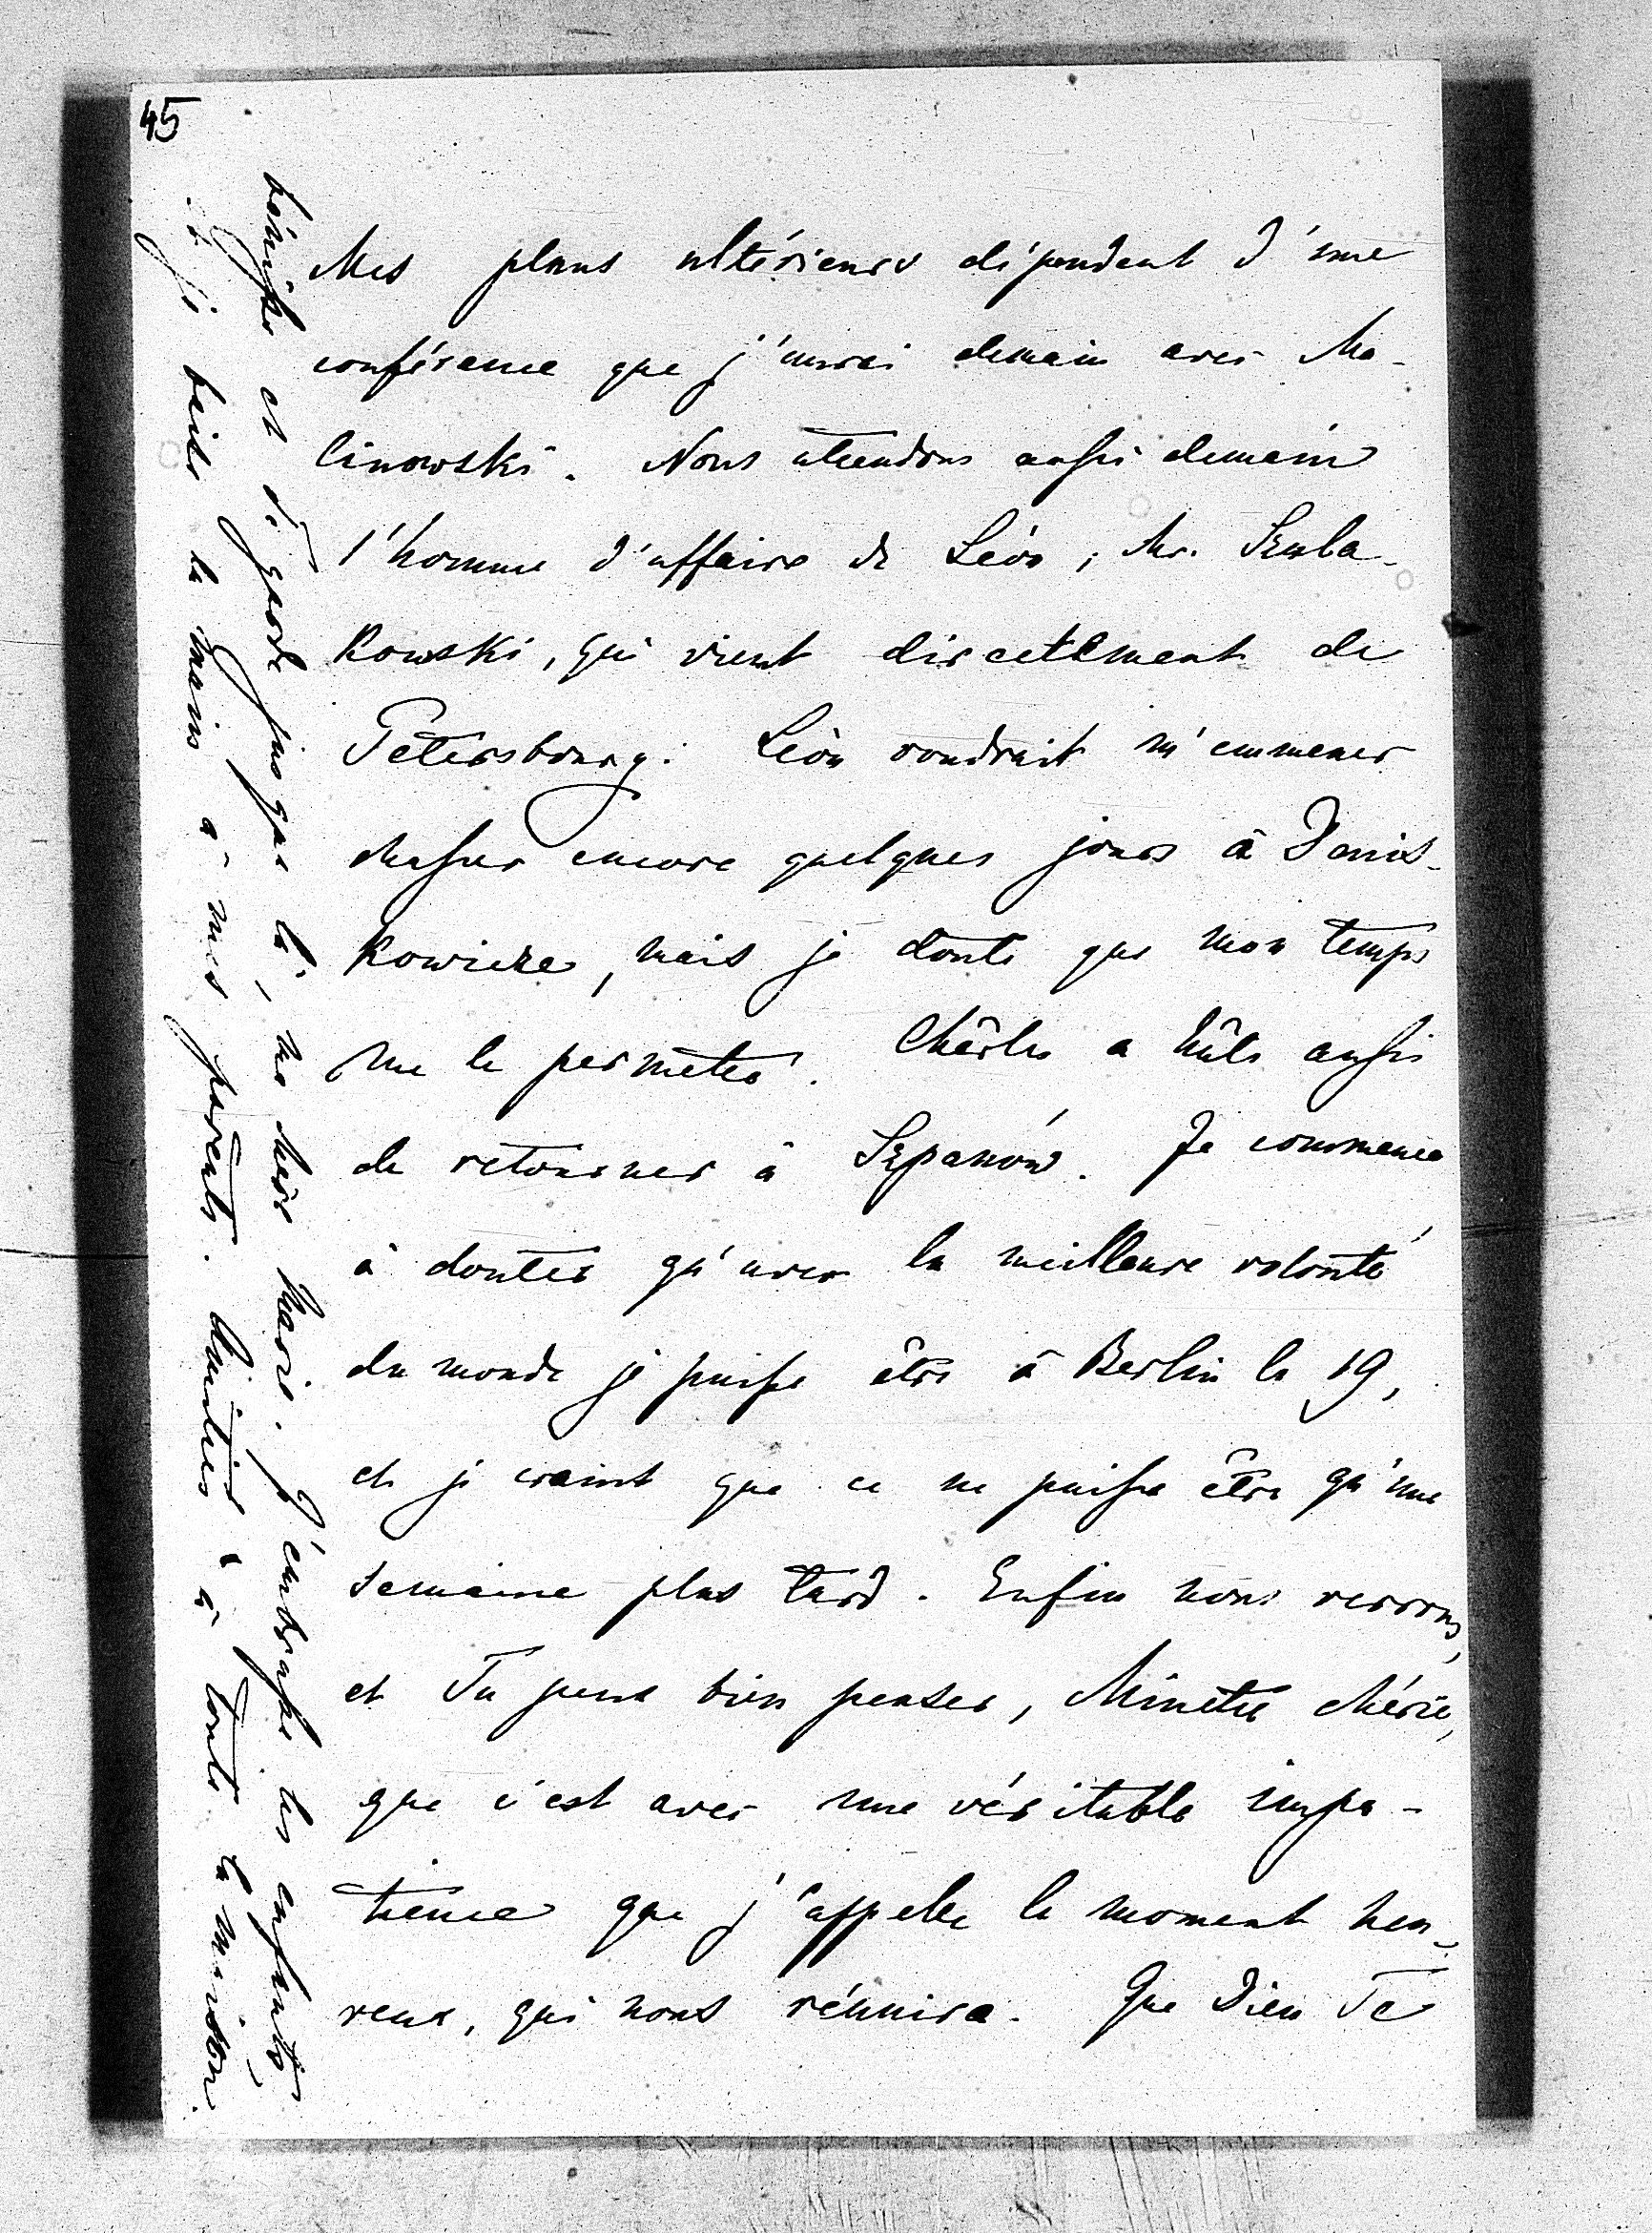 45
Mes plans ultérieurs dépendent d'une
conférence que j'aurai demain avec Ma-
linowski. Nous attendons aussi demain
l'homme d'affaire de Léon, Mr. Szula-
kowski, qui vient directement de
Pétersbourg. Léon voudrait m'emmener
chasser encore quelques jours à Denis-
kowicze, mais je doute que mon temps
me le permette. Charles a hâte aussi
de retourner à Szpanów. Je commence
à douter qu'avec la meilleure volonté
du monde je puisse être à Berlin le 19,
et je craint que ce ne puisse être qu'une
semaine plus tard. Enfin nous verrons,
et Tu peux bien penser, Minette chérie,
que c'est avec une véritable impa-
tience que j'appelle le moment heu-
reux, qui nous réunira. Que Dieu Te
bénisse et Te garde jusque là, ma chère Marie. J'embrasse les enfants,
et je baise les mains à mes parents. Amitiés à toute la maison.